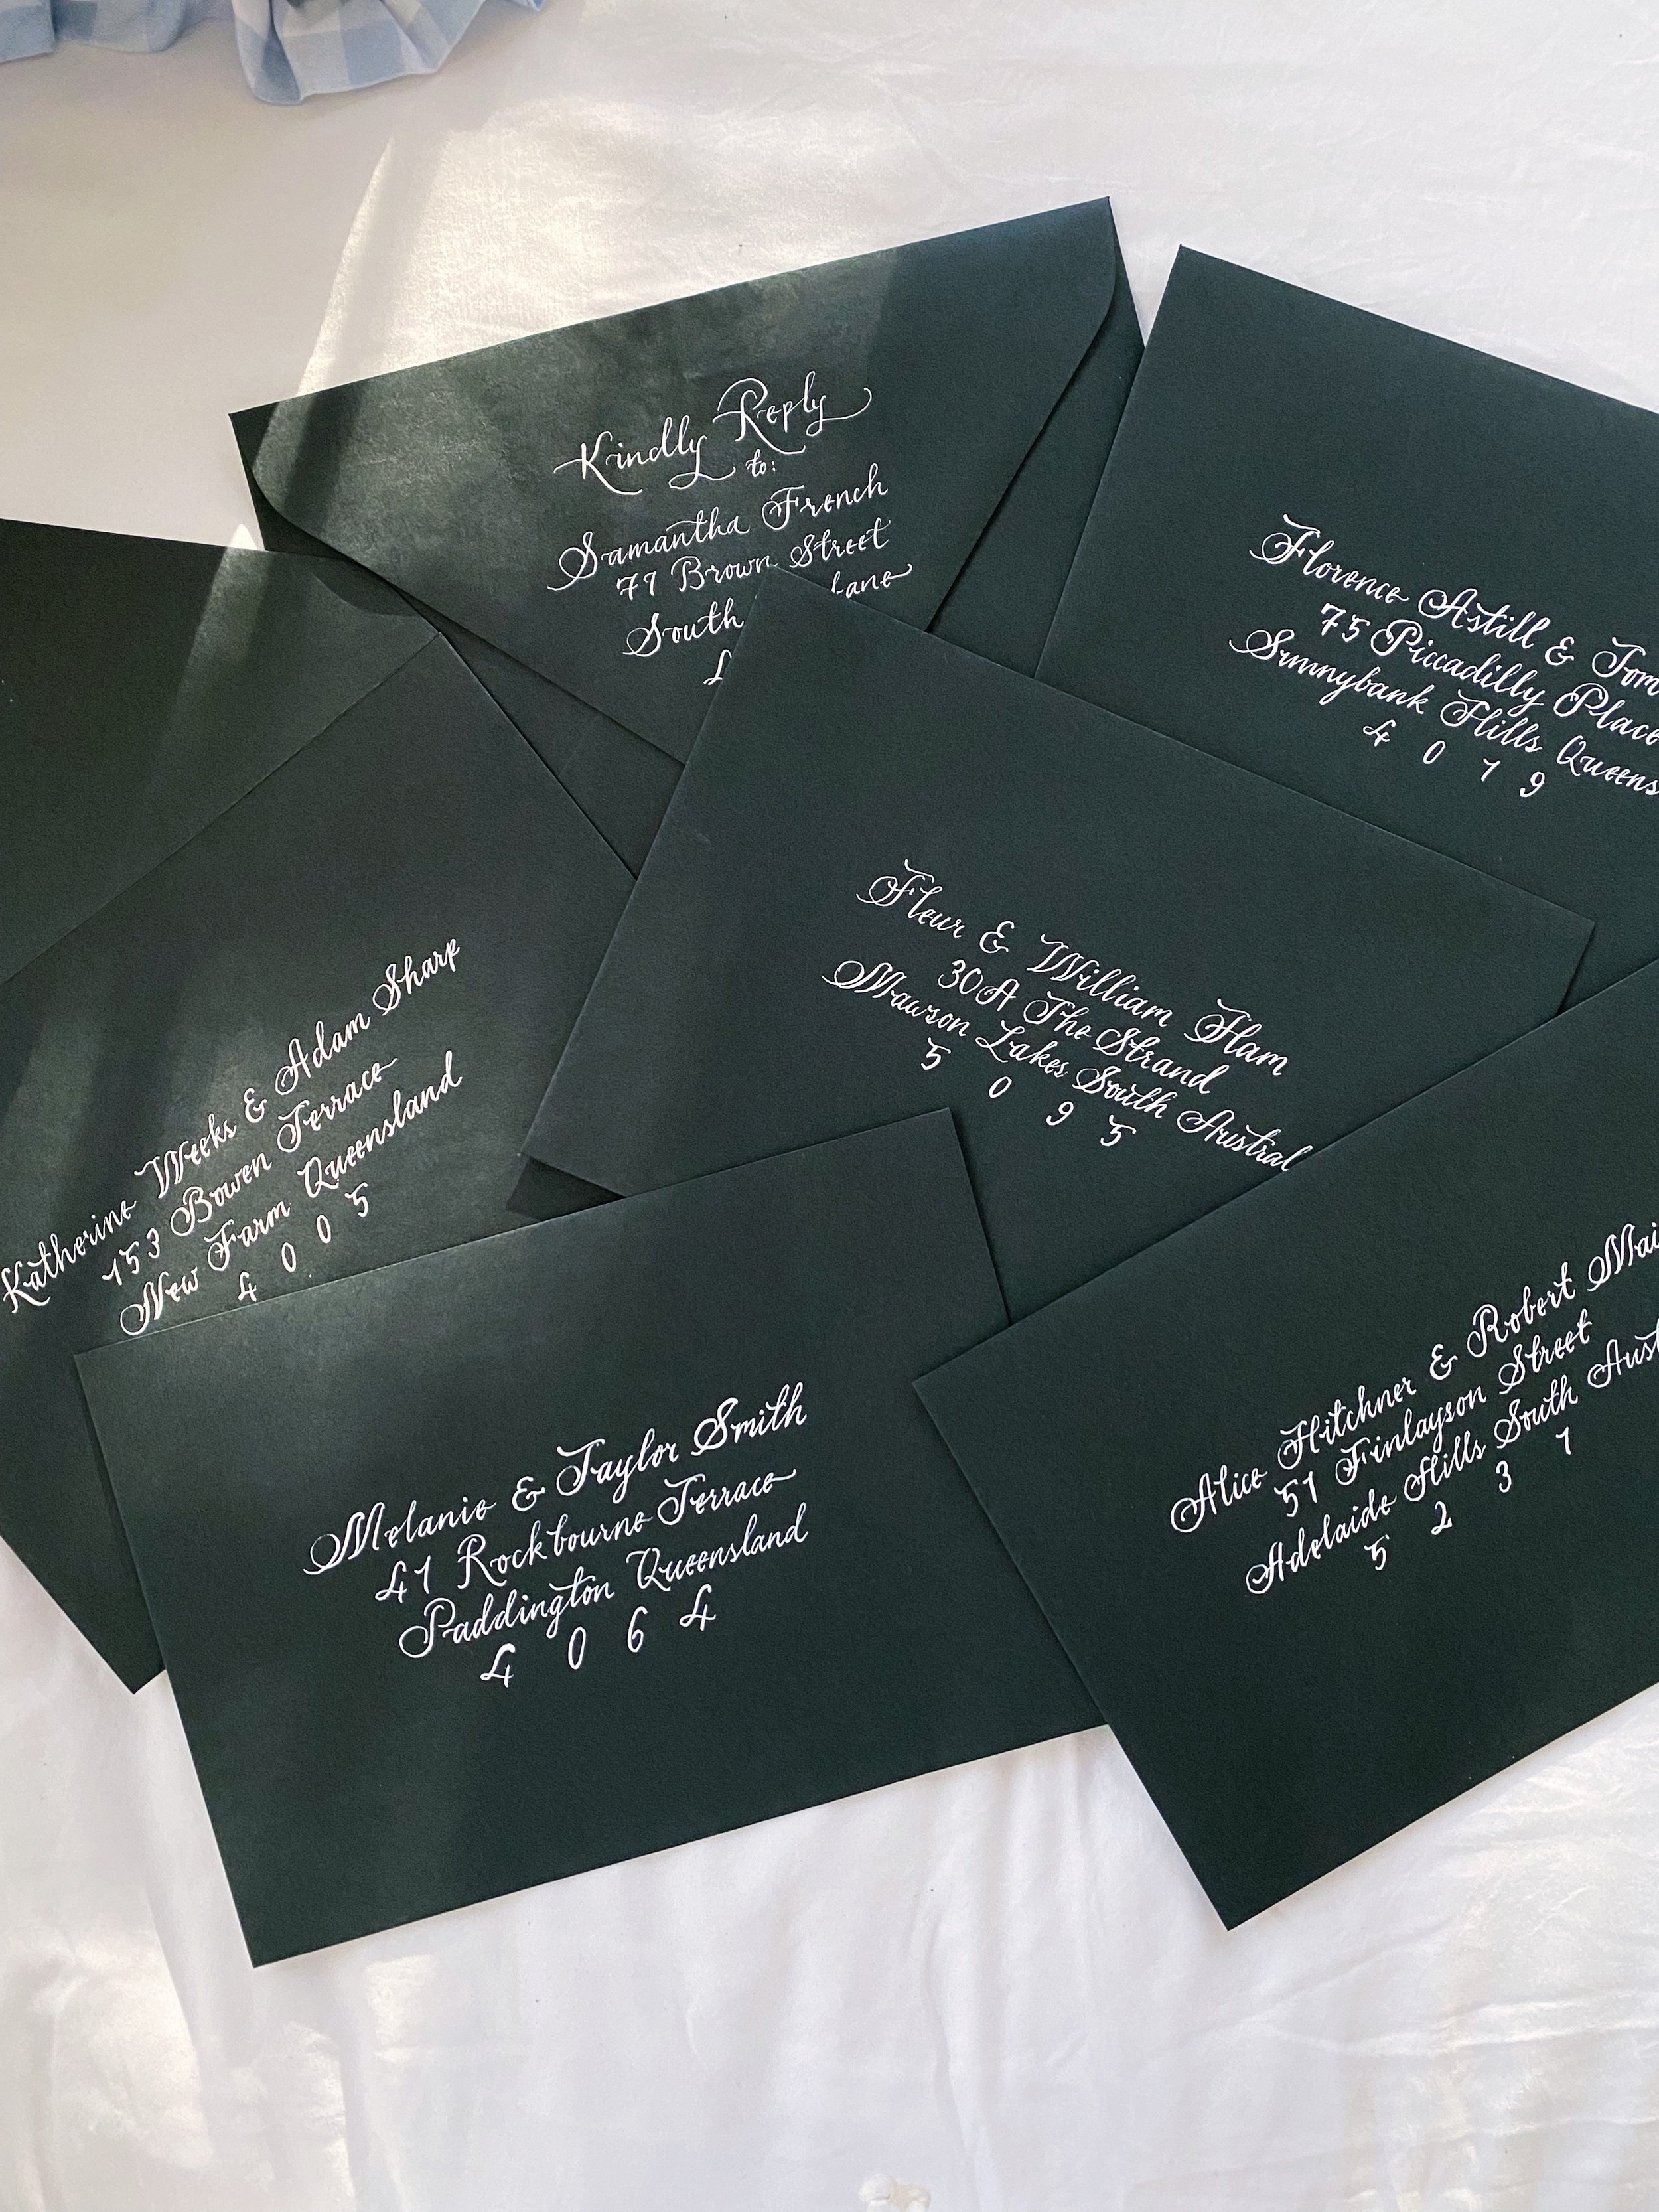 Kindly Reply
to:
Samantha French
77 Brown Street
South
Florence Astill & Tom
75 Piccadilly Place
Sunnybank Hills Queens
4 0 1 9
Fleur & William Ham
30A The Strand
Mawson Lakes South Austral
5 0 9 5
Katherine Weeks & Adam Sharp
153 Bowen Terrace
New Farm Queensland
4 0 0 5
Melanie & Taylor Smith
41 Rockbourne Terrace
Paddington Queensland
4 0 6 4
Alice Hitchner & Robert Mai
51 Finlayson Street
Adelaide Hills South Aust
5 2 3 1